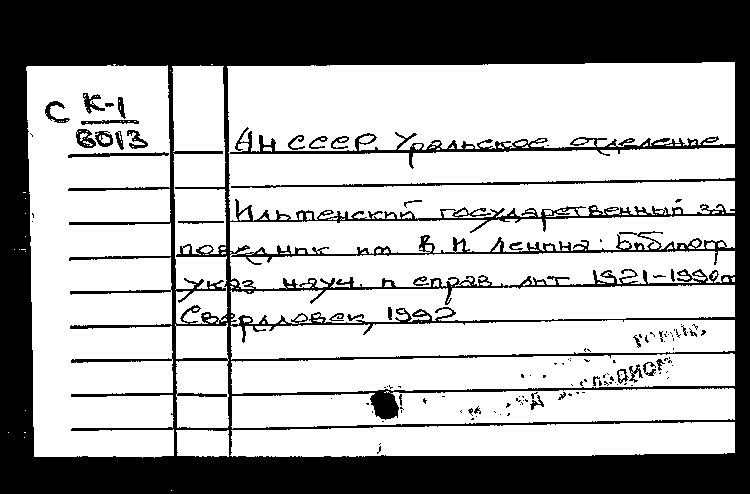 С К-1
6013
АН СССР. Уральское отделение
Ильменский государственный за-
поведник им. В.И. Ленина: Библиогр.
указ науч. и справ. лит 1921-1990гг
Свердловск, 1992